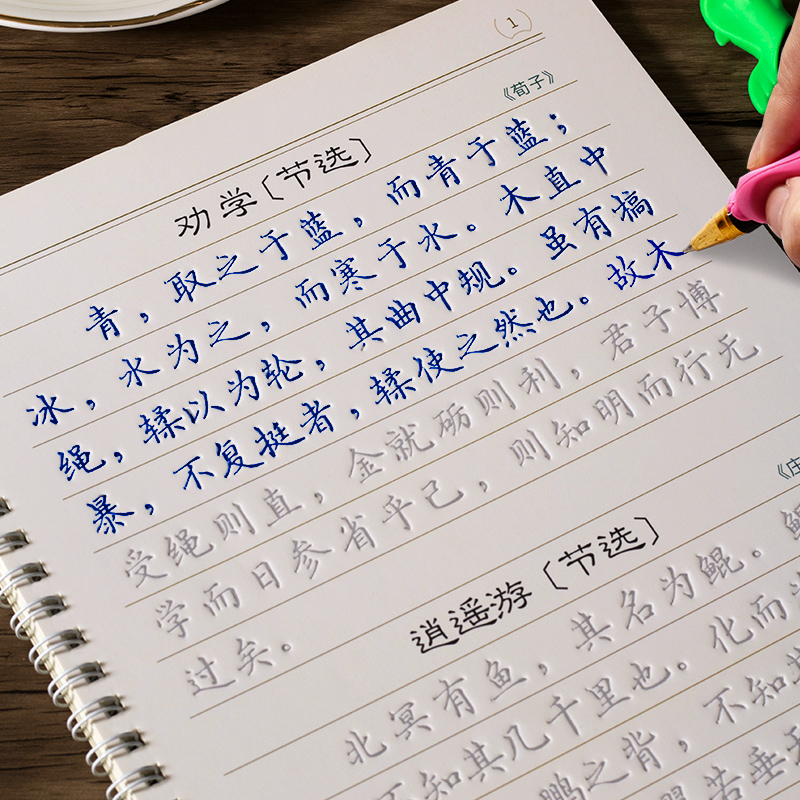 1
《荀子》
劝学〔节选〕
青，取之于蓝，而青于蓝；
冰，水为之，而寒于水。木直中
绳，𫐓以为轮，其曲中规。虽有槁
暴，不复挺者，𫐓使之然也。故木
受绳则直，金就砺则利，君子博
学而日参省乎己，则知明而行无
过矣。
《庄
逍遥游〔节选〕
北冥有鱼，其名为鲲。鲲
不知其几千里也。化而
鹏之背，不知其
若垂天